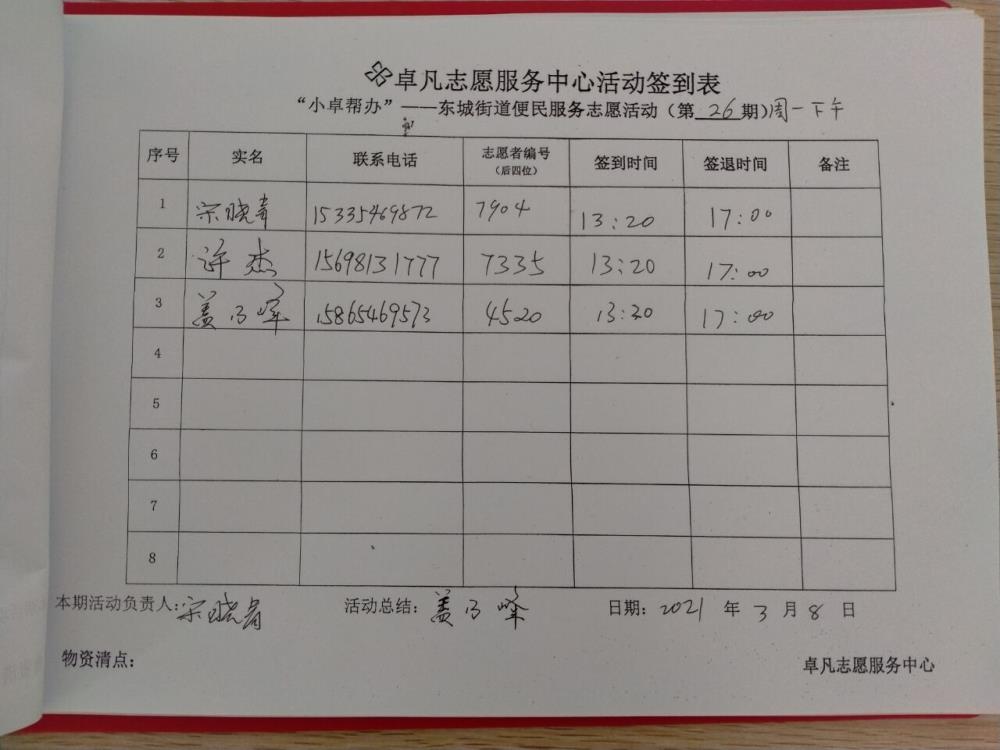 卓凡志愿服务中心活动签到表
“小卓帮办”——东城街道便民服务志愿活动（第 26 期）周一下午
序号 实名 联系电话 志愿者编号（后四位） 签到时间 签退时间 备注
1 宋晓青 15335469872 7904 13:20 17:00
2 许杰 15698131777 7335 13:20 17:00
3 盖乃峰 15865469573 4520 13:20 17:00
4
5
6
7
8
本期活动负责人：宋晓青 活动总结：盖乃峰 日期：2021 年 3 月 8 日
物资清点： 卓凡志愿服务中心